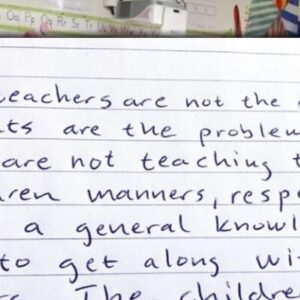 Oo Pp Rr Ss Tt Uu Vv Ww Xx
eachers are not the
ts are the problem
are not teaching
ren manners, resp
a general knowl
to get along wi
The childre